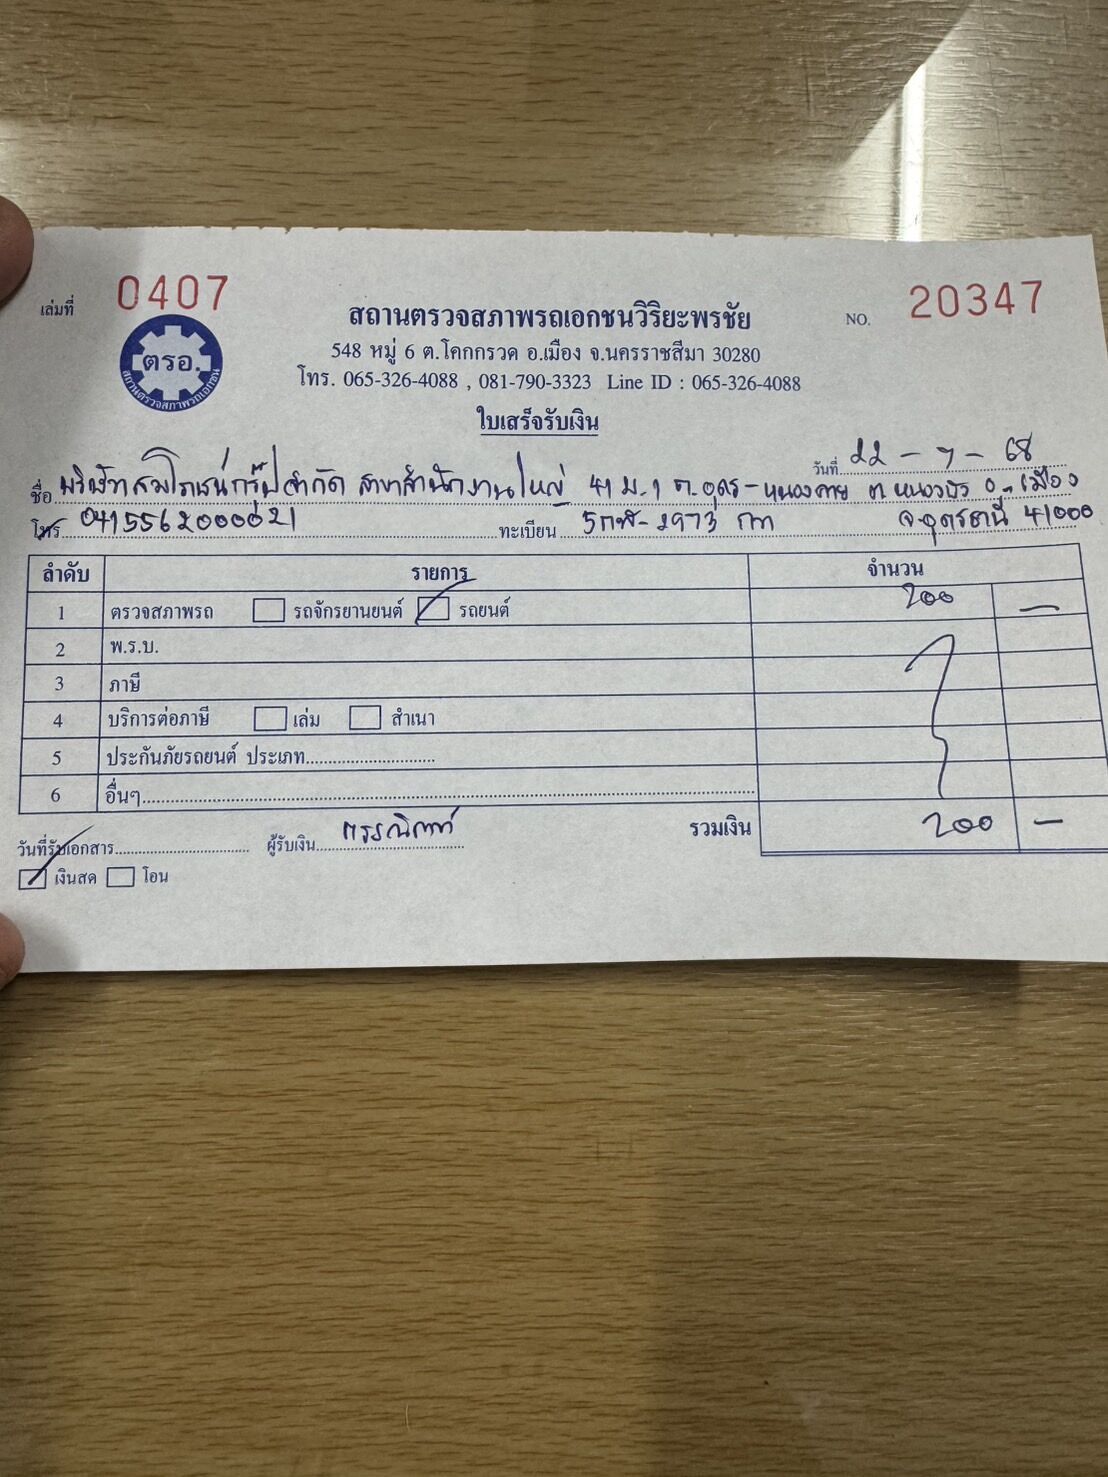 เล่มที่ 0407
NO. 20347
ตรอ.
สถานตรวจสภาพรถเอกชน
สถานตรวจสภาพรถเอกชนวิริยะพรชัย
548 หมู่ 6 ต.โคกกรวด อ.เมือง จ.นครราชสีมา 30280
โทร. 065-326-4088 , 081-790-3323 Line ID : 065-326-4088
ใบเสร็จรับเงิน
วันที่ 22 - 7 - 68
ชื่อ บริษัทสมโภชน์กรุ๊ปจำกัด สาขาสำนักงานใหญ่ 41 ม.1 ถ.อุดร-หนองคาย ต.หนองบัว อ.เมือง
โทร 0415562000021 ทะเบียน 2973 กท จ.อุดรธานี 41000
ลำดับ รายการ จำนวน
1 ตรวจสภาพรถ รถจักรยานยนต์ รถยนต์ 200 —
2 พ.ร.บ.
3 ภาษี
4 บริการต่อภาษี เล่ม สำเนา
5 ประกันภัยรถยนต์ ประเภท
6 อื่นๆ
รวมเงิน 200 —
วันที่รับเอกสาร ผู้รับเงิน
เงินสด โอน